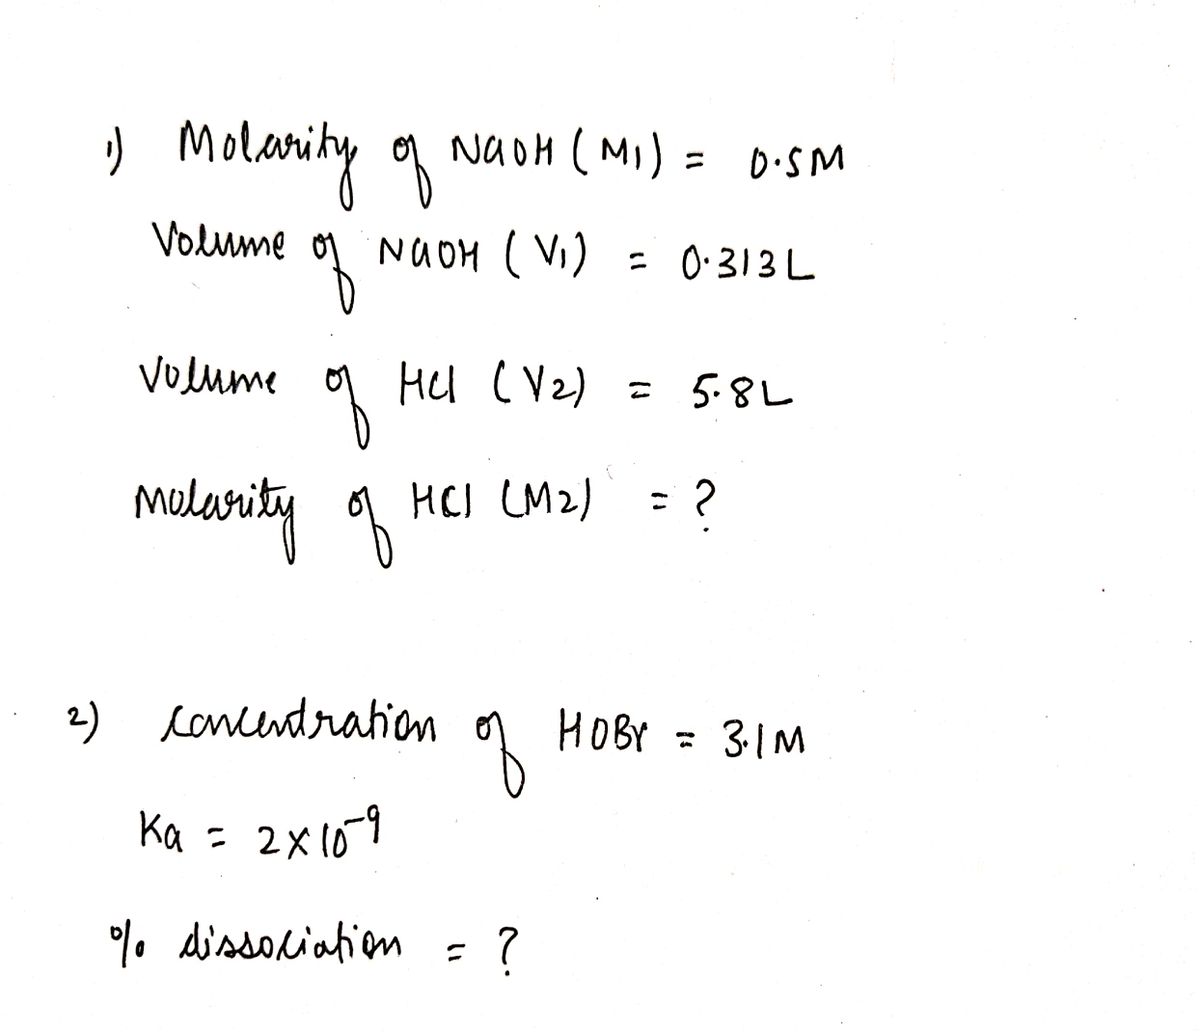 1) Molarity of NaOH (M1) = 0.5M
Volume of NaOH (V1) = 0.313L
Volume of HCl (V2) = 5.8L
Molarity of HCl (M2) = ?
2) concentration of HOBr = 3.1M
Ka = 2×10⁻⁹
% dissociation = ?